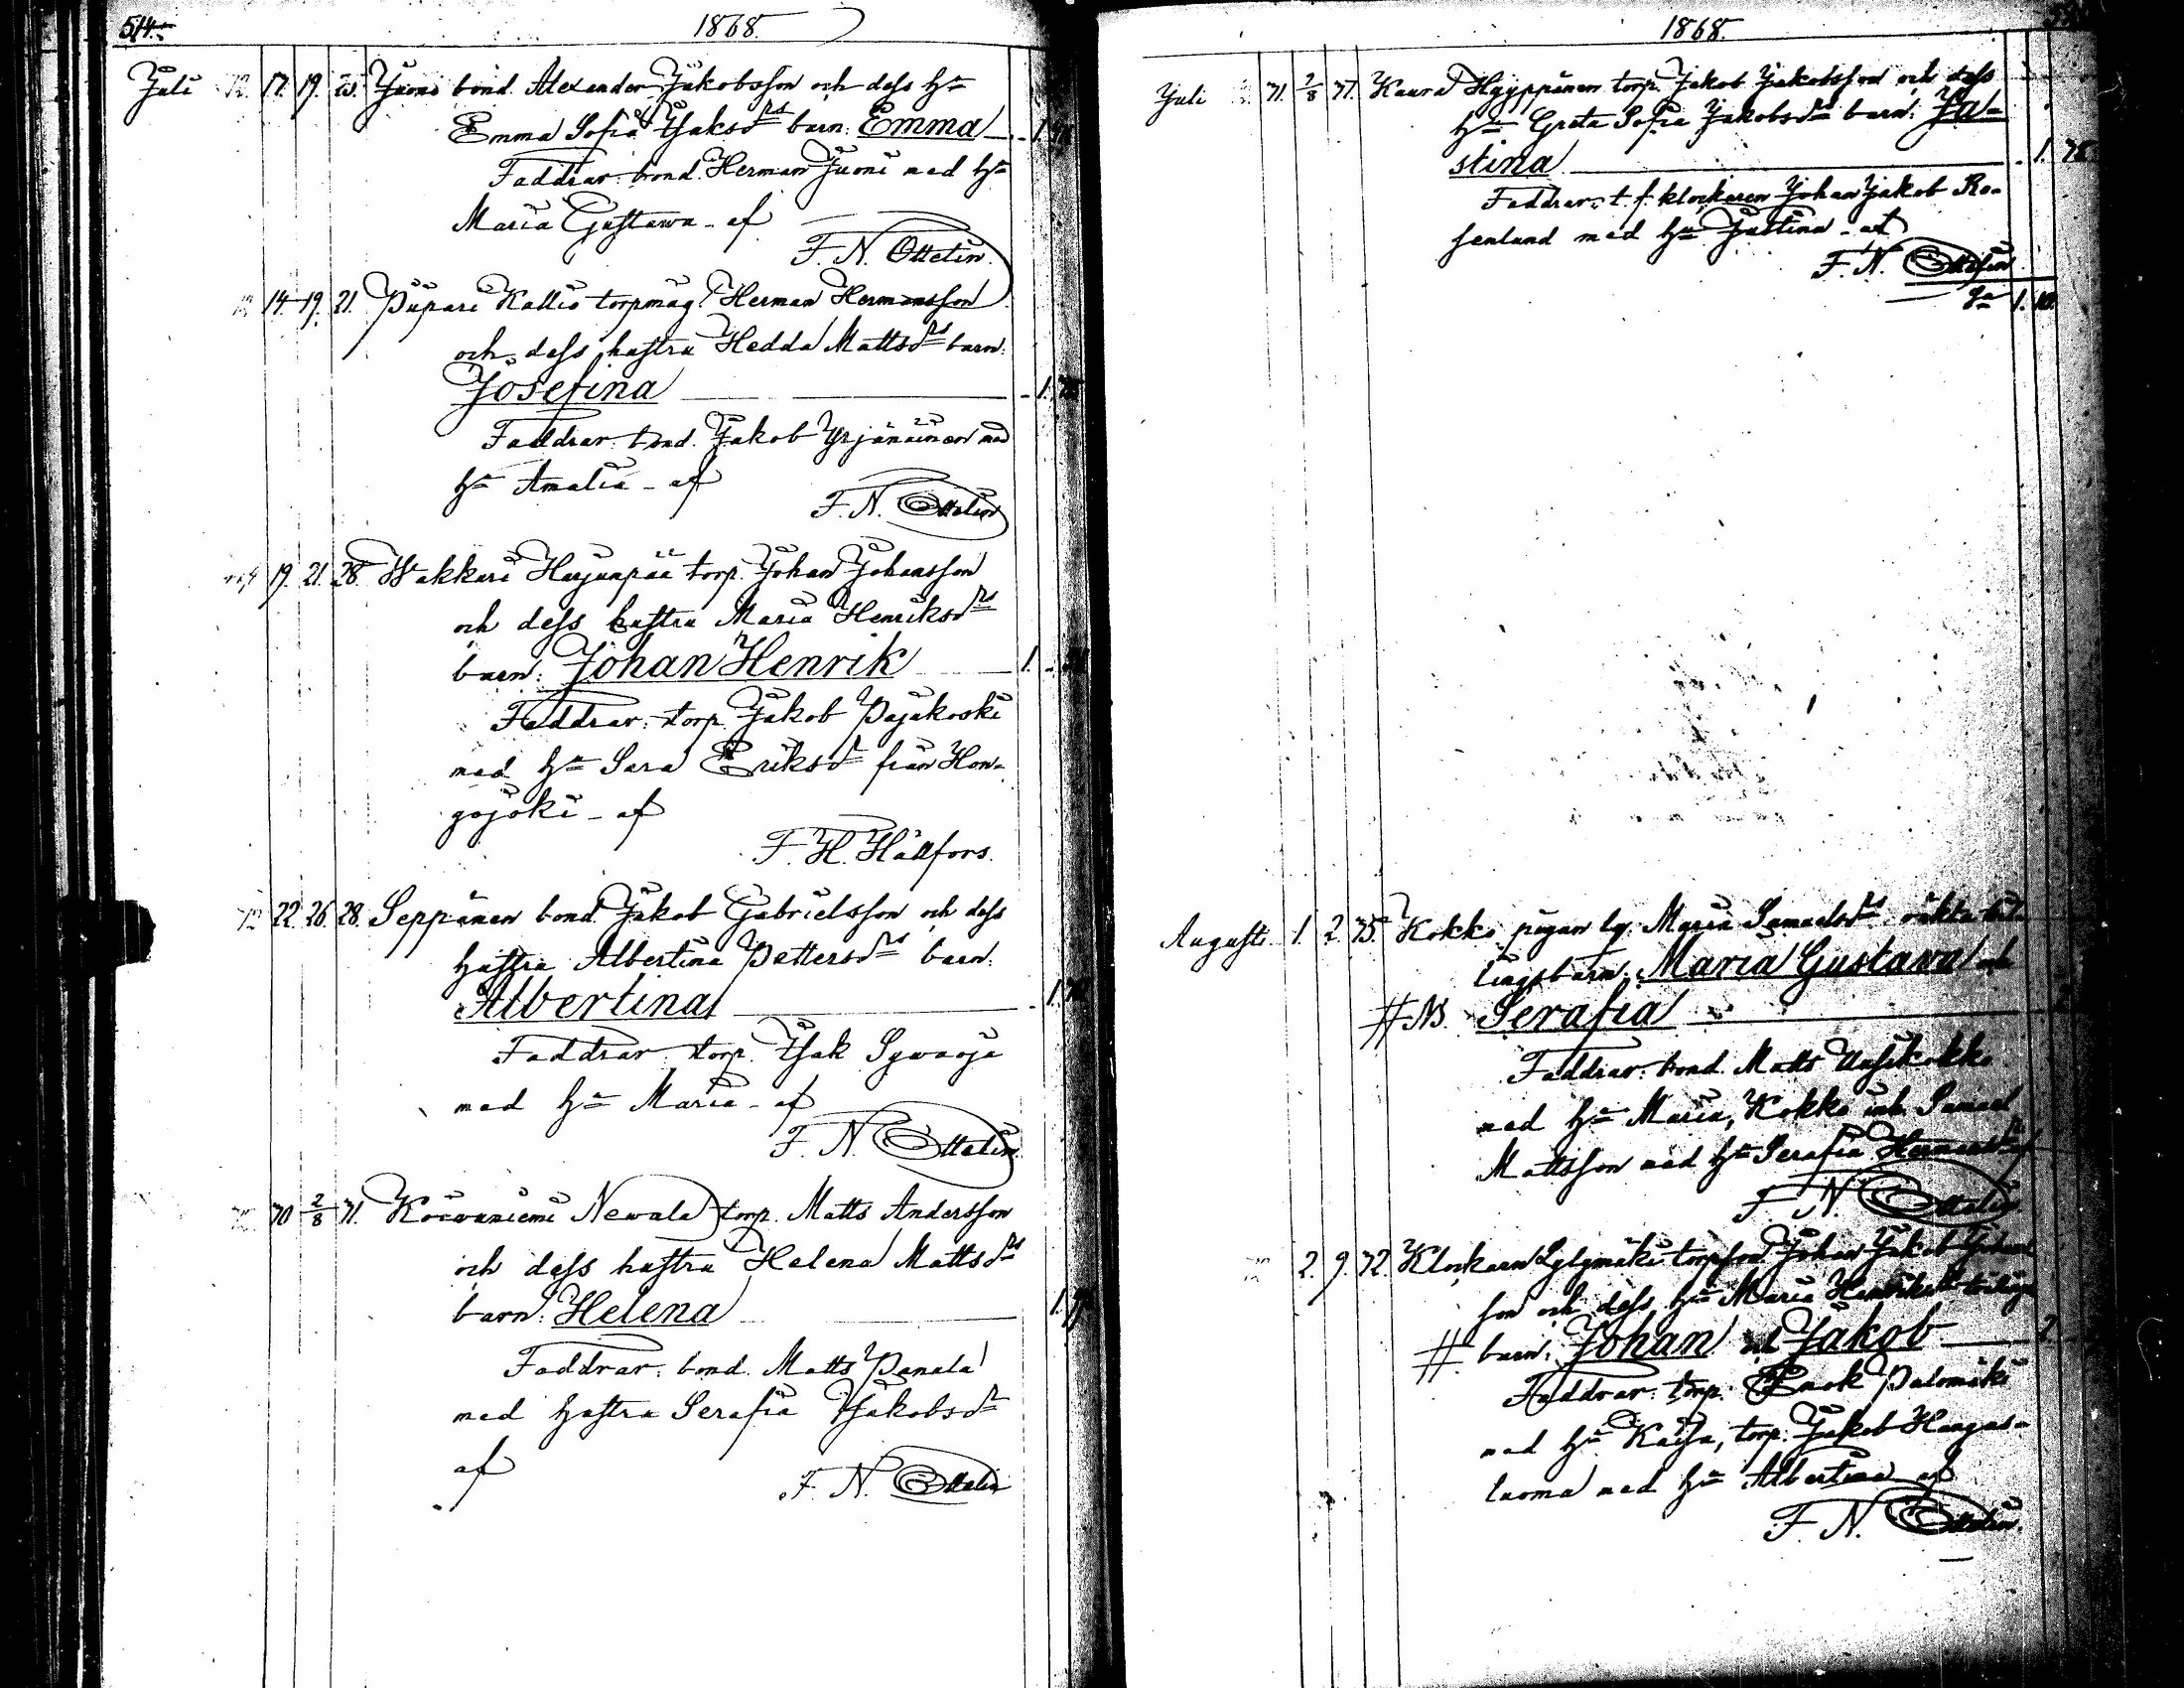 514.
1868.
Juli 17. 19. 20. Juoni bond. Alexander Jakobsson och dess hu
Emma Sofia Isaksdrs barn: Emma 1.
Faddrar: bond. Herman Juoni med hu
Maria Gustawa - af
F. N. Ottelin.
14 19. 21. Püpari Kallio torpmåg. Herman Hermansson
och dess hustru Hedda Mattsdrs barn:
Josefina 1.
Faddrar: bond. Jakob Yrjänäinen med
hu Amalia - af
F. N. Ottelin
19. 21. 28. Wakkuri Harjunpää torp. Johan Johansson
och dess hustru Maria Henriksdrs
barn: Johan Henrik 1.
Faddrar: torp. Jakob Pajukoski
med hu Sara Eriksdr från Hon-
gojoki - af
F. H. Hällfors.
22. 26. 28. Seppänen bond. Jakob Gabrielsson och dess
hustru Albertina Pettersdrs barn:
Albertina 1.
Faddrar: torp. Isak Sywäoja
med hu Maria - af
F. N. Ottelin
70 2/8 71. Koiwuniemi Newala torp. Matts Andersson
och dess hustru Helena Mattsdrs
barn: Helena 1.
Faddrar: bond. Matts Panula
med hustru Serafia Jakobsdr
af F. N. Ottelin
1868.
Juli 71. 2/8 77. Kaura Hyyppänen torp. Jakob Jakobsson och dess
hu Greta Sofia Jakobsdrs barn: Ju-
stina 1. 78
Faddrar: t. f. klockaren Johan Jakob Ro-
senlund med hu Justina - af
F. N. Ottelin
Sa 1. 10.
Augusti 1. 2. 75. Kokko pigan lg. Maria Samuelsdrs oäkta tvil-
lingsbarn: Maria Gustava och
# NB. Serafia 2
Faddrar: bond. Matts Uusikokko
med hu Maria, Kokko inh. Samuel
Mattsson med hu Serafia Hermansdr af
F. N. Ottelin
2. 9. 72. Klockarn Lylymäki torpson Johan Jakob Johans
son och dess hu Maria Henriksdrs tvilings
# barn: Johan och Jakob 2.
Faddrar: torp. Enok Palomäki
med hu Kajsa, torp. Jakob Kangas-
luoma med hu Albertina af
F. N. Ottelin.